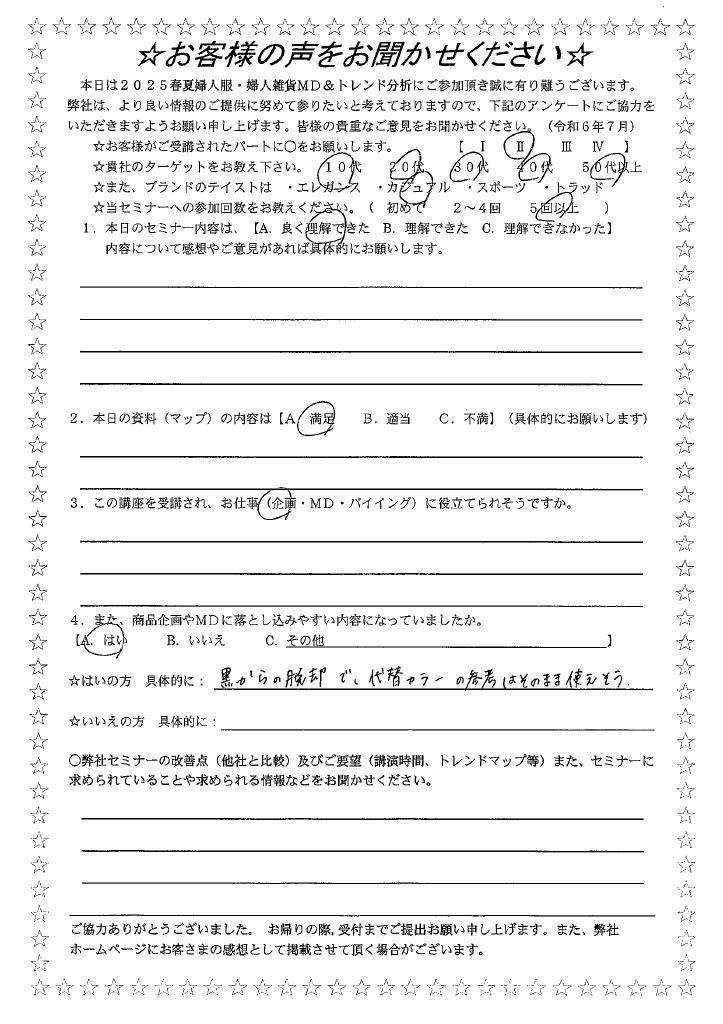 ☆お客様の声をお聞かせください☆
本日は２０２５春夏婦人服・婦人雑貨ＭＤ＆トレンド分析にご参加頂き誠に有り難うございます。
弊社は、より良い情報のご提供に努めて参りたいと考えておりますので、下記のアンケートにご協力を
いただきますようお願い申し上げます。皆様の貴重なご意見をお聞かせください。（令和６年７月）
☆お客様がご受講されたパートに〇をお願いします。　【　Ⅰ　Ⅱ　Ⅲ　Ⅳ　】
☆貴社のターゲットをお教え下さい。　１０代　２０代　３０代　４０代　５０代以上
☆また、ブランドのテイストは　・エレガンス　・カジュアル　・スポーツ　・トラッド
☆当セミナーへの参加回数をお教えください。（　初めて　２～４回　５回以上　）
１．本日のセミナー内容は、【A．良く理解できた　B．理解できた　C．理解できなかった】
内容について感想やご意見があれば具体的にお願いします。
２．本日の資料（マップ）の内容は【A．満足　B．適当　C．不満】（具体的にお願いします）
３．この講座を受講され、お仕事（企画・ＭＤ・バイイング）に役立てられそうですか。
４．また、商品企画やＭＤに落とし込みやすい内容になっていましたか。
【A．はい　B．いいえ　C．その他　】
☆はいの方　具体的に：　黒からの脱却で、代替カラーの参考はそのまま使えそう。
☆いいえの方　具体的に：
〇弊社セミナーの改善点（他社と比較）及びご要望（講演時間、トレンドマップ等）また、セミナーに
求められていることや求められる情報などをお聞かせください。
ご協力ありがとうございました。　お帰りの際，受付までご提出お願い申し上げます。また、弊社
ホームページにお客さまの感想として掲載させて頂く場合がございます。